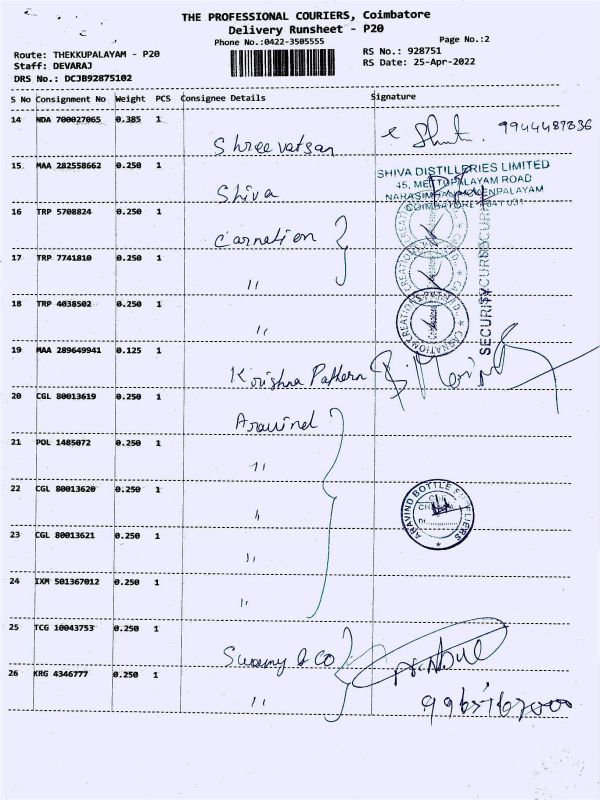 THE PROFESSIONAL COURIERS, Coimbatore
Delivery Runsheet - P20
Phone No.:0422-3505555
Page No.:2
Route: THEKKUPALAYAM - P20
RS No.: 928751
Staff: DEVARAJ
RS Date: 25-Apr-2022
DRS No.: DCJB9287S102
S No Consignment No Weight PCS Consignee Details Signature
14 NDA 700027065 0.385 1
Shreevatsan
15 MAA 282558662 0.250 1
Shiva
SHIVA DISTILLERIES LIMITED
45, METTUPALAYAM ROAD
COIMBATORE-641 031
16 TRP 5708824 0.250 1
Carnation
17 TRP 7741810 0.250 1
"
18 TRP 4038502 0.250 1
"
SECURITY
19 MAA 289649941 0.125 1
Krishna Pattern
20 CGL 80013619 0.250 1
Aravind
21 POL 1485072 0.250 1
"
22 CGL 80013620 0.250 1
"
ARAVIND BOTTLE SUPPLIERS
23 CGL 80013621 0.250 1
"
24 IXM 501367012 0.250 1
"
25 TCG 10043753 0.250 1
Swamy & Co
26 KRG 4346777 0.250 1
"